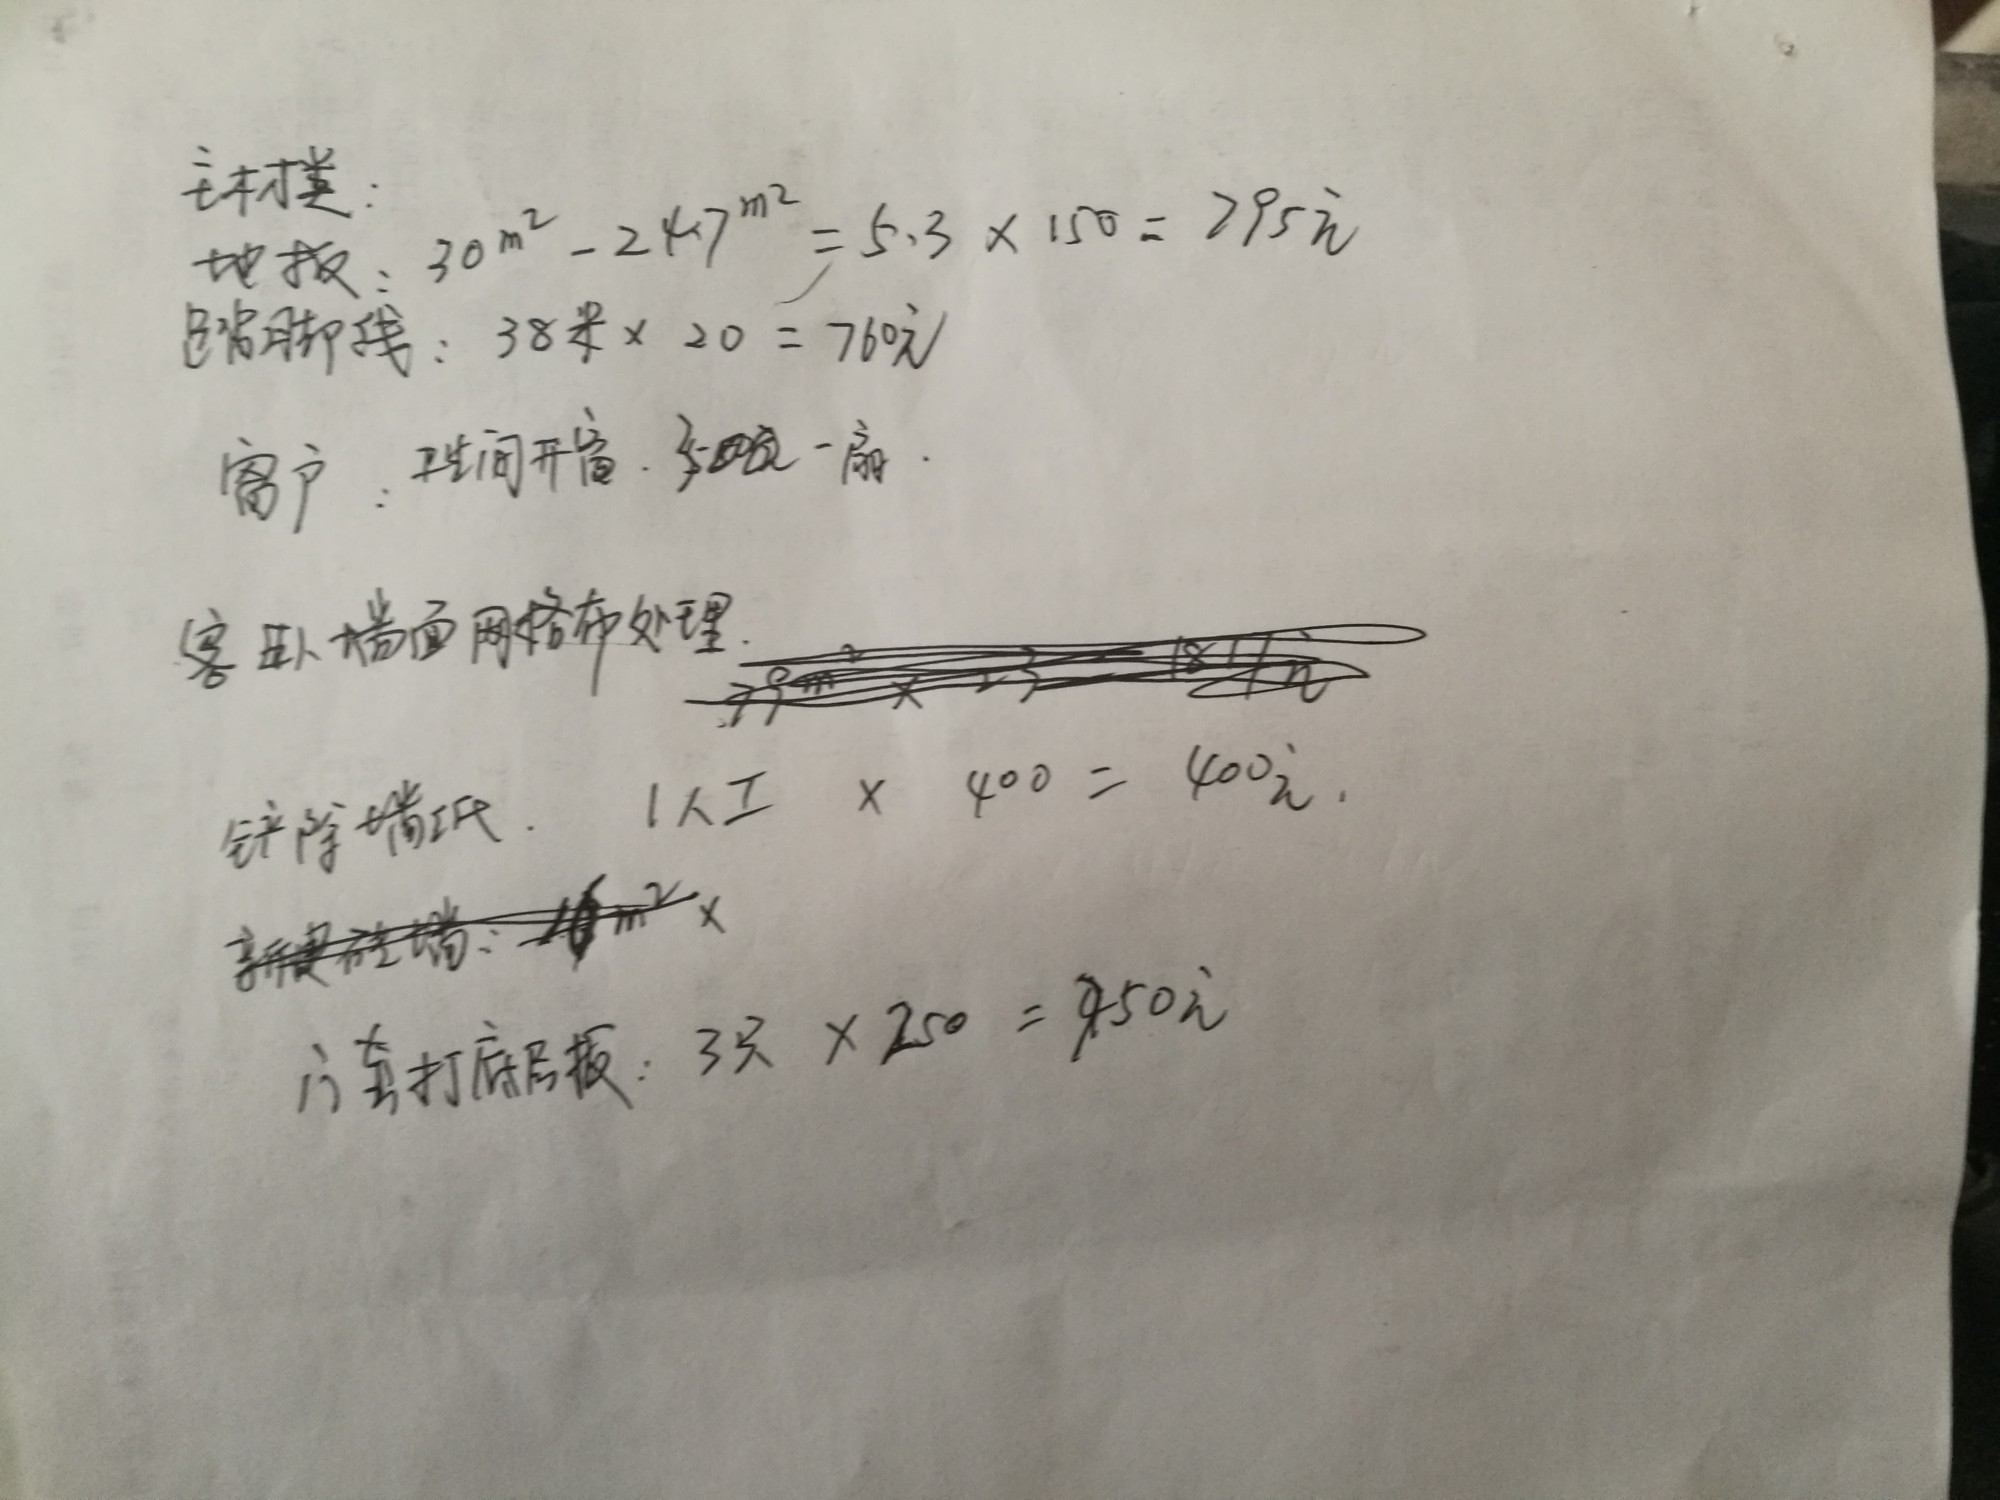 主材类:
地板: 30m² - 24.7m² = 5.3 × 150 = 795元
踢脚线: 38米 × 20 = 760元
窗户: 卫生间开窗. 一扇.
客卧墙面网格布处理.
铲除墙纸. 1人工 × 400 = 400元.
新建砖墙: m² ×
门套打底层板: 3只 × 250 = 750元